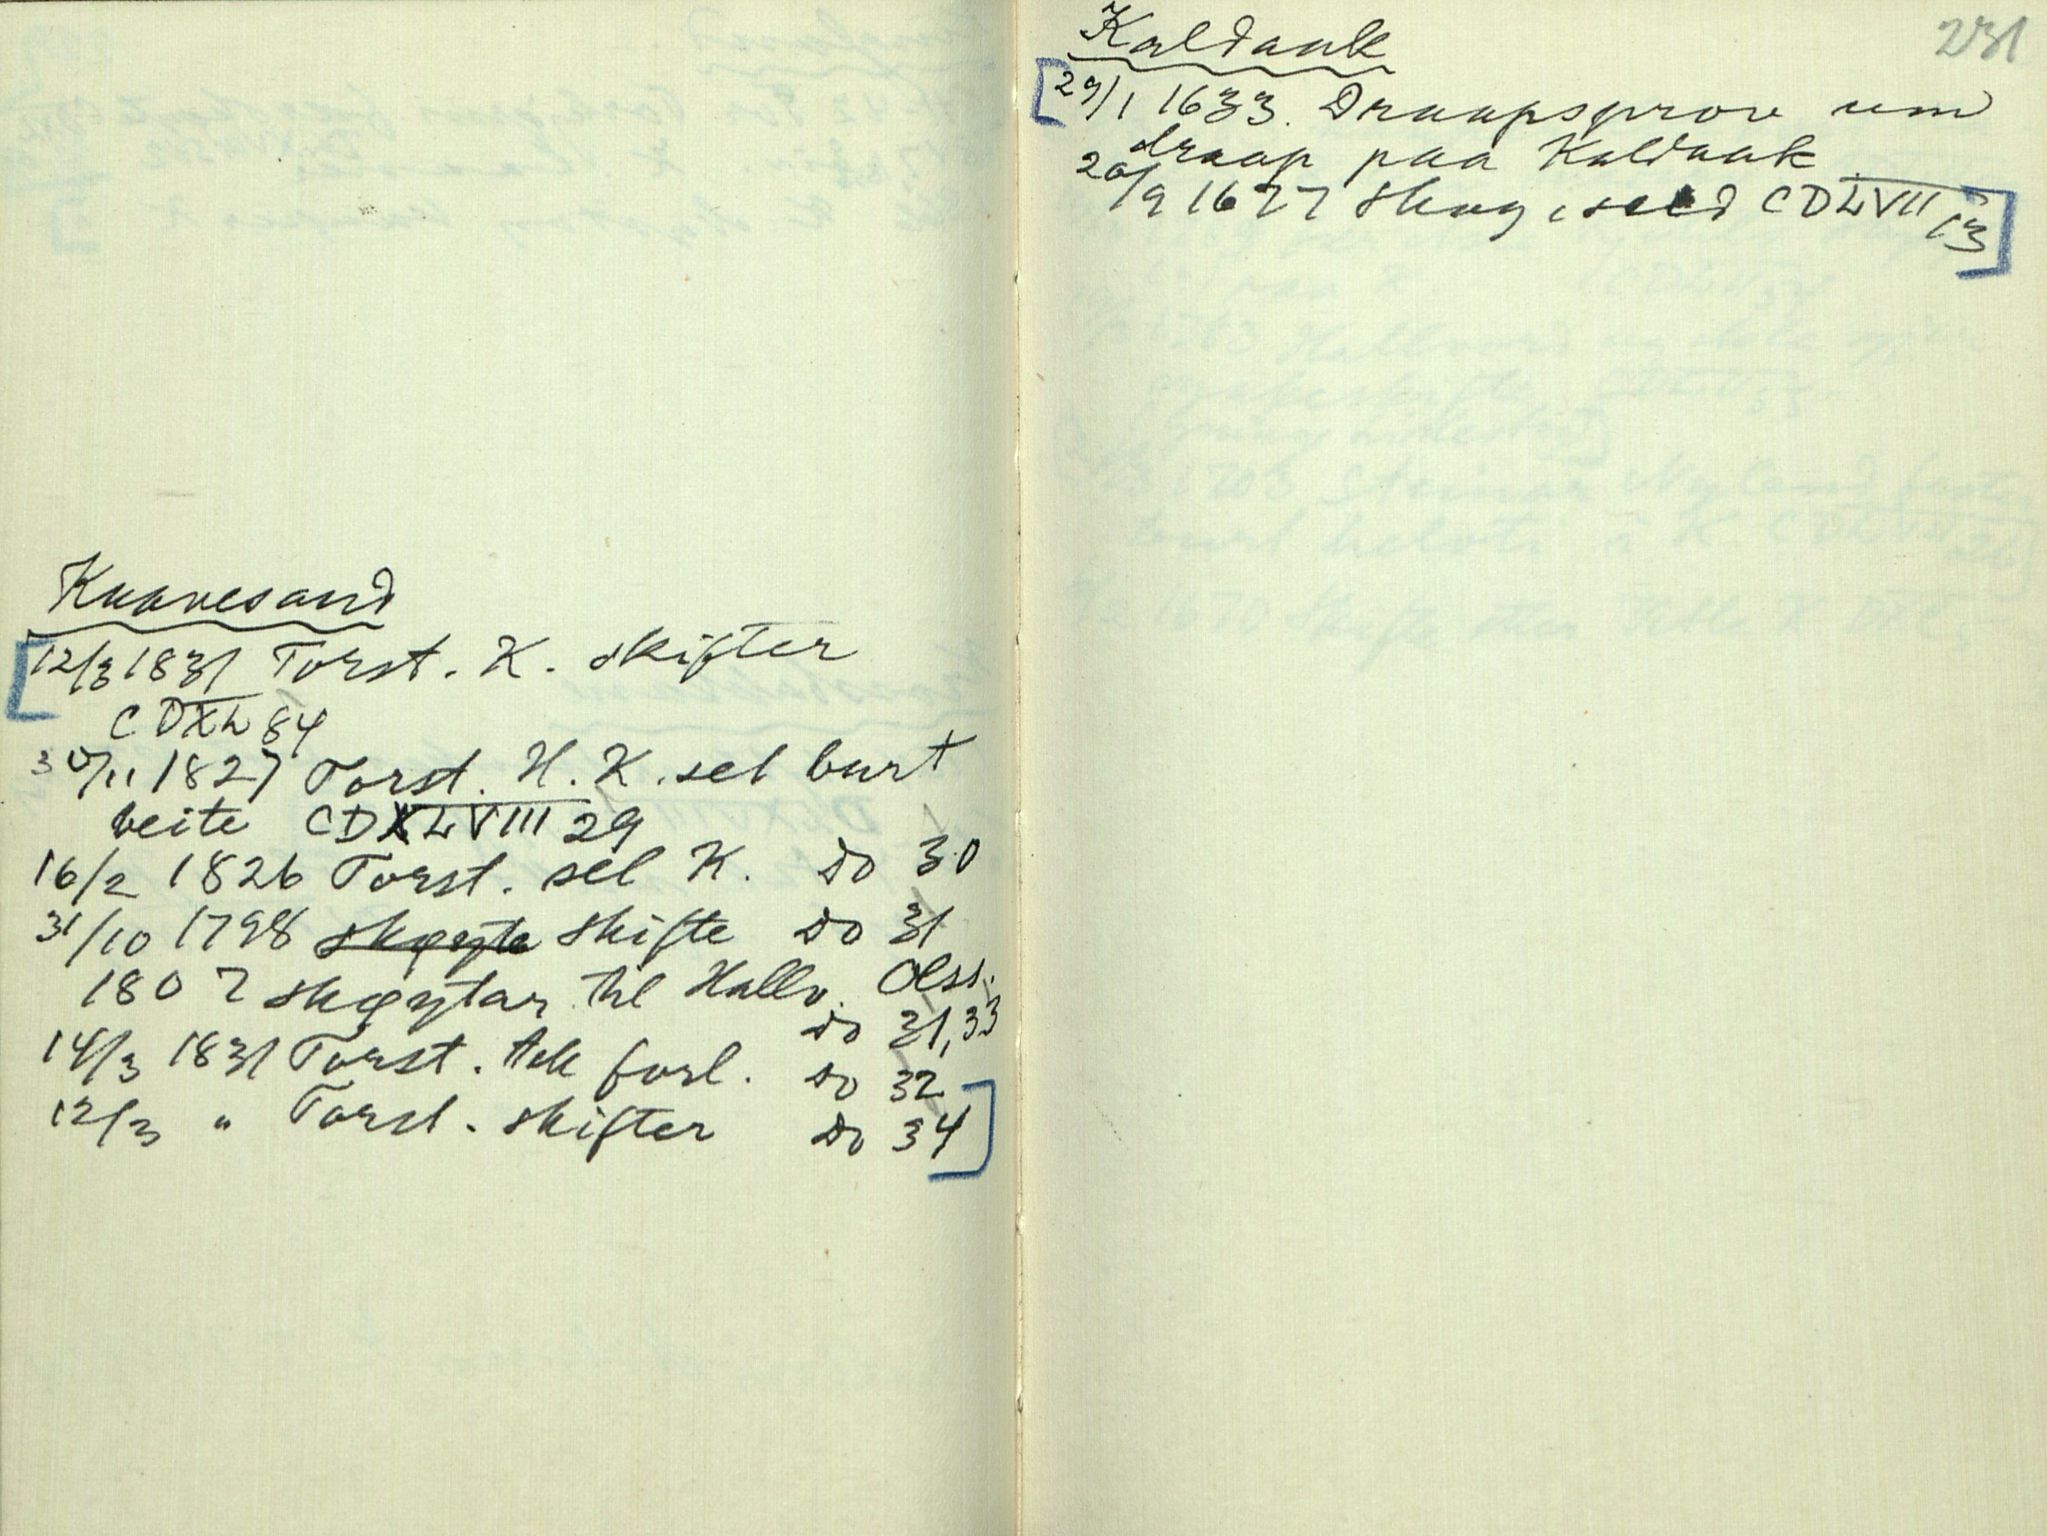 Knavesand
[12/3 1831 Torst. K. skifter
CDXL 84
30/11 1827 Torst. H. K. sel burt
beite CDXLVIII 29
16/2 1826 Torst. sel K. Do 30
31/10 1798 skøyte skifte Do 31
1807 skøytar til Hallv. Olss.
Do 31, 33
14/3 1831 Torst. tek forl. Do 32
12/3 " Torst. skifter Do 34]
231
Kaldaak
[29/1 1633. Draapsprov um
draap paa Kaldaak
20/9 1677 Skog, seld CDLVII 13]